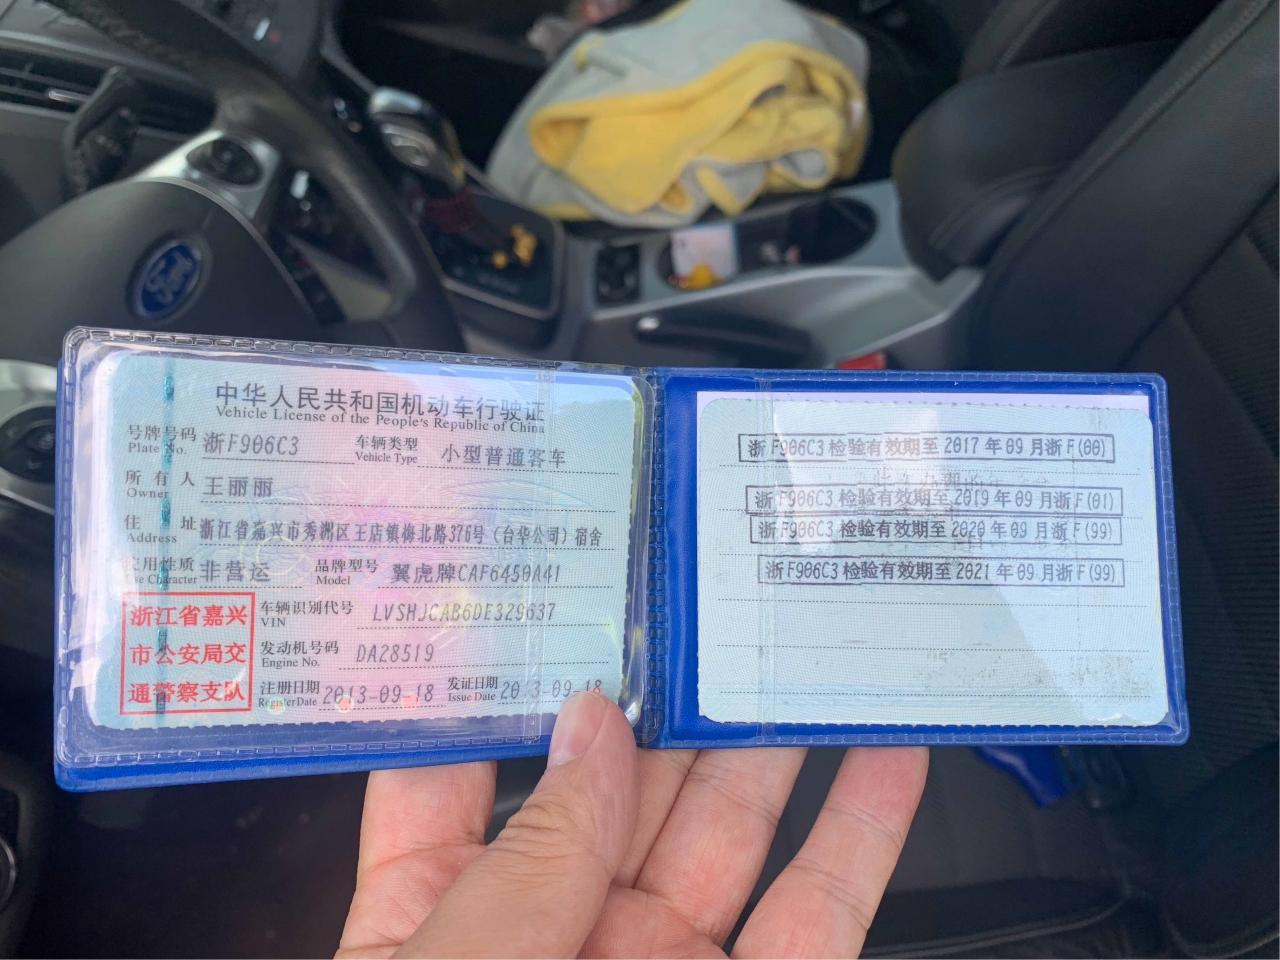 Ford
中华人民共和国机动车行驶证
Vehicle License of the People's Republic of China
号牌号码 浙F906C3 车辆类型 小型普通客车
Plate No. Vehicle Type
所有人 王丽丽
Owner
住址 浙江省嘉兴市秀洲区王店镇梅北路376号（台华公司）宿舍
Address
使用性质 非营运 品牌型号 翼虎牌CAF6450A41
Use Character Model
浙江省嘉兴
市公安局交
通警察支队
车辆识别代号 LVSHJCAB6DE329637
VIN
发动机号码 DA28519
Engine No.
注册日期 2013-09-18 发证日期 2013-09-18
Register Date Issue Date
浙F906C3检验有效期至2017年09月浙F(00)
浙F906C3检验有效期至2019年09月浙F(01)
浙F906C3检验有效期至2020年09月浙F(99)
浙F906C3检验有效期至2021年09月浙F(99)